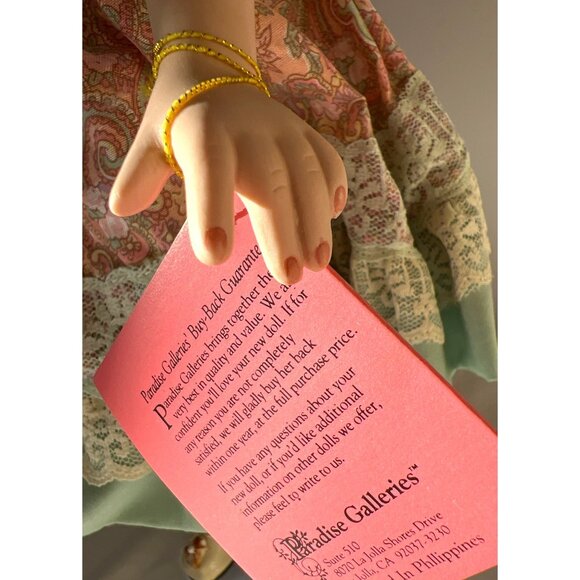 Paradise Galleries' Buy-Back Guarantee
Paradise Galleries brings together the
very best in quality and value. We a
confident you'll love your new doll. If for
any reason you are not completely
satisfied, we will gladly buy her back
within one year, at the full purchase price.
If you have any questions about your
new doll, or if you'd like additional
information on other dolls we offer,
please feel to write to us.
Paradise Galleries™
Suite 510
8070 La Jolla Shores Drive
Jolla, CA 92037-3230
d In Philippines